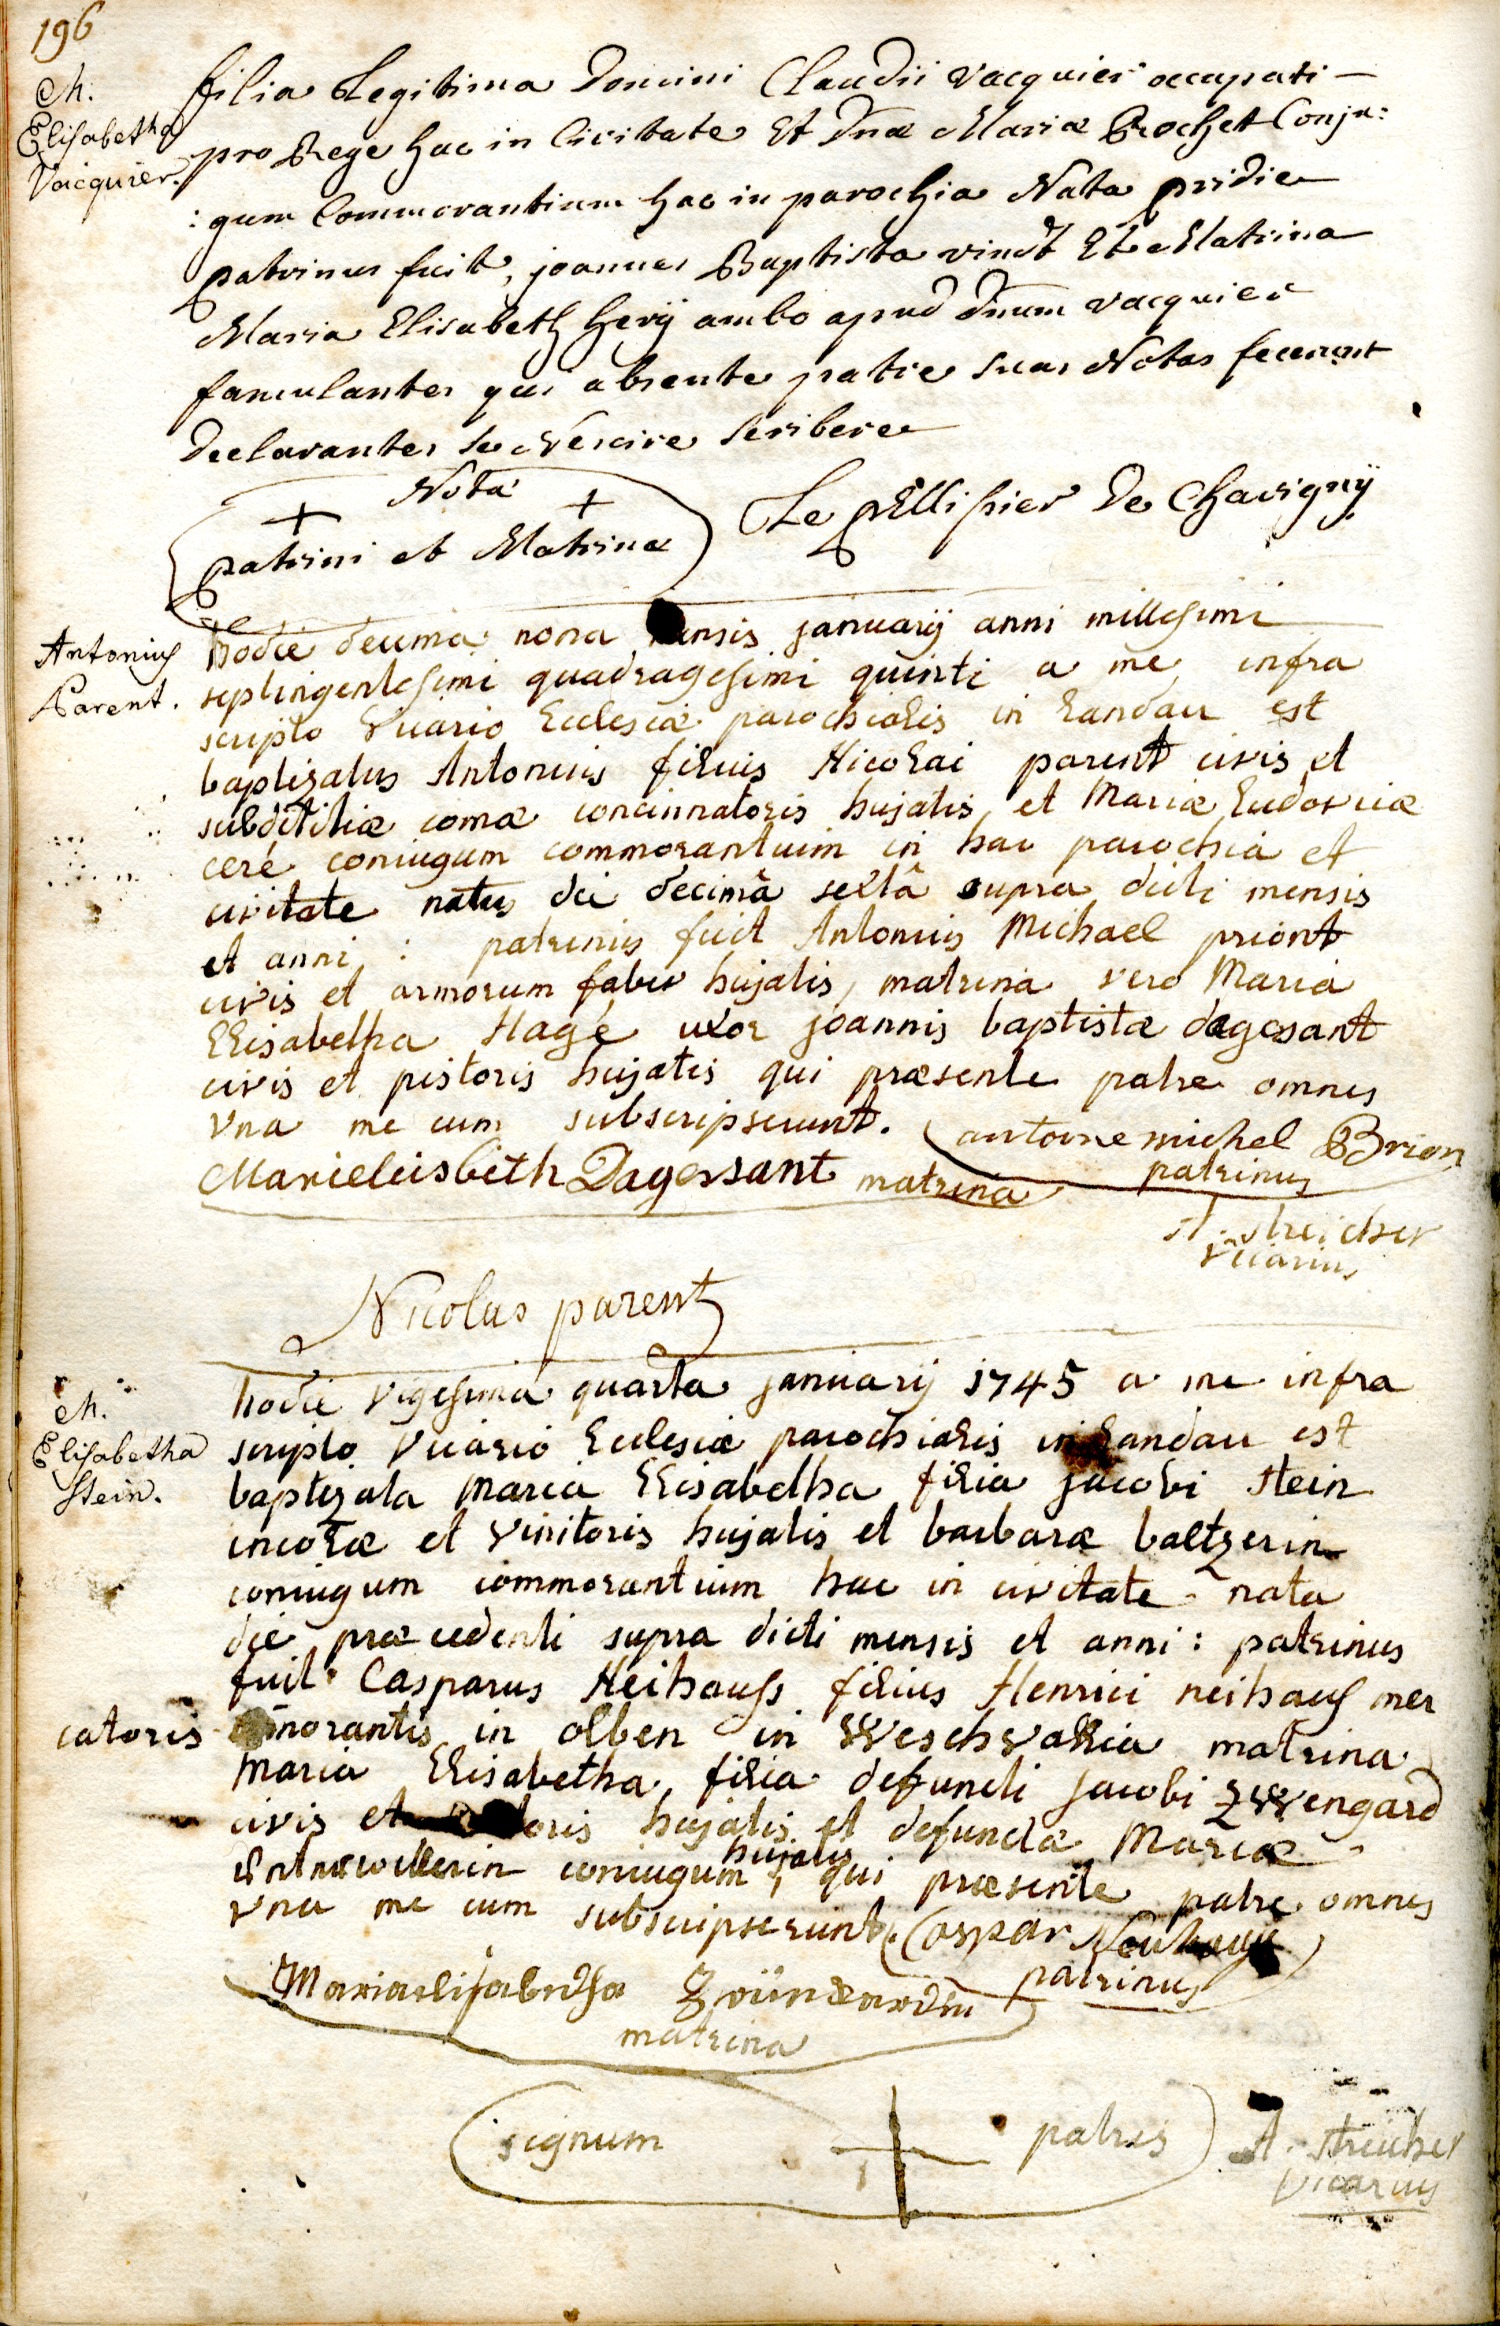 196
M.
Elisabetha
Vacquier.
filia Legitima Domini Claudii vacquier occupati —
pro Rege hac in Civitate Et Dnæ Mariæ Brochet Conju:
:gum Commorantium hac in parochia Nata pridie
patrinus fuit, joannes Baptista vinot Et Matrina
Maria Elisabeth herÿ ambo apud Dnum vacquier
famulantes qui absente patre suas Notas fecerunt
Declarantes se Nescire scribere
Nota
+ +
patrini et Matrinæ
Le pellissier De Chavignÿ
Antonius
Parent.
hodie decima nona mensis januarij anni millesimi
septingentesimi quadragesimi quinti a me infra
scripto Vicario Ecclesiæ parochialis in Landau est
baptizatus Antonius filius Nicolai parent civis et
subdititiæ comæ concinnatoris hujatis et Mariæ Ludovicæ
ceré coniugum commorantium in hac parochia et
civitate natus die decimâ sextâ supra dicti mensis
et anni : patrinus fuit Antonius Michael priont
civis et armorum faber hujatis, matrina vero Maria
Elisabetha Hagé uxor joannis baptistæ dagesant
civis et pistoris hujatis qui præsente patre omnes
Vna me cum subscripserunt. antoine michel Brion
patrinus
Marieleisbeth Dagessant matrina
A. streicher
vicarius
Nicolas parent
M.
Elisabetha
Stein.
hodie vigesima quarta januarij 1745 a me infra
scripto Vicario Ecclesiæ parochialis in Landau est
baptizata Maria Elisabetha filia jacobi stein
incolæ et vinitoris hujatis et barbaræ baltzerin
coniugum commorantium hac in civitate nata
die præcedenti supra dicti mensis et anni : patrinus
fuit Casparus Neihauss filius Henrici neihaus mer
catoris morantis in olben in Weschvallia matrina
Maria Elisabetha, filia defuncti jacobi Zwengard
civis et hujatis et defunctæ Mariæ
coniugum hujatis, qui præsente patre omnes
Vna me cum subscripserunt. Caspar Neuhaus
patrinus
Mariaelisabetha
matrina
signum + patris
A. streicher
Vicarius